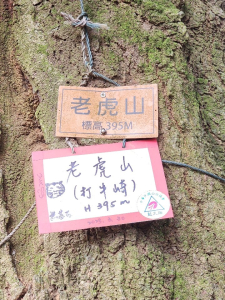 老虎山
標高395M
老虎山
(打牛崎)
H 395m